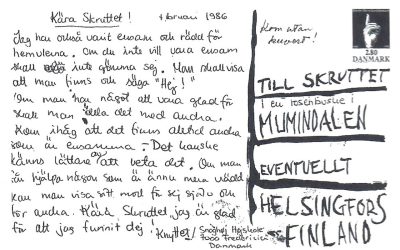 Kära Skruttet! februari 1986
Jag har också varit ensam och rädd för
hemulerna. Om du inte vill vara ensam
skall inte gömma sej. Man skall visa
att man finns och säga "Hej!"
Om man har något att vara glad för
skall man dela det med andra.
Kom ihåg att det finns alltid andra
som är ensamma. Det kanske
känns lättare att veta det. Om man
kan hjälpa någon som är ännu mera rädd
kan man visa sitt mod för sej själv och
för andra. Kära Skruttet jag är glad
för att jag funnit dej! Knyttet/
Snoghøj Højskole
Fredericia
Danmark
Kom utan
kuvert!
2.80
DANMARK
TILL SKRUTTET
i en rosenbuske i
MUMINDALEN
EVENTUELLT
HELSINGFORS
FINLAND